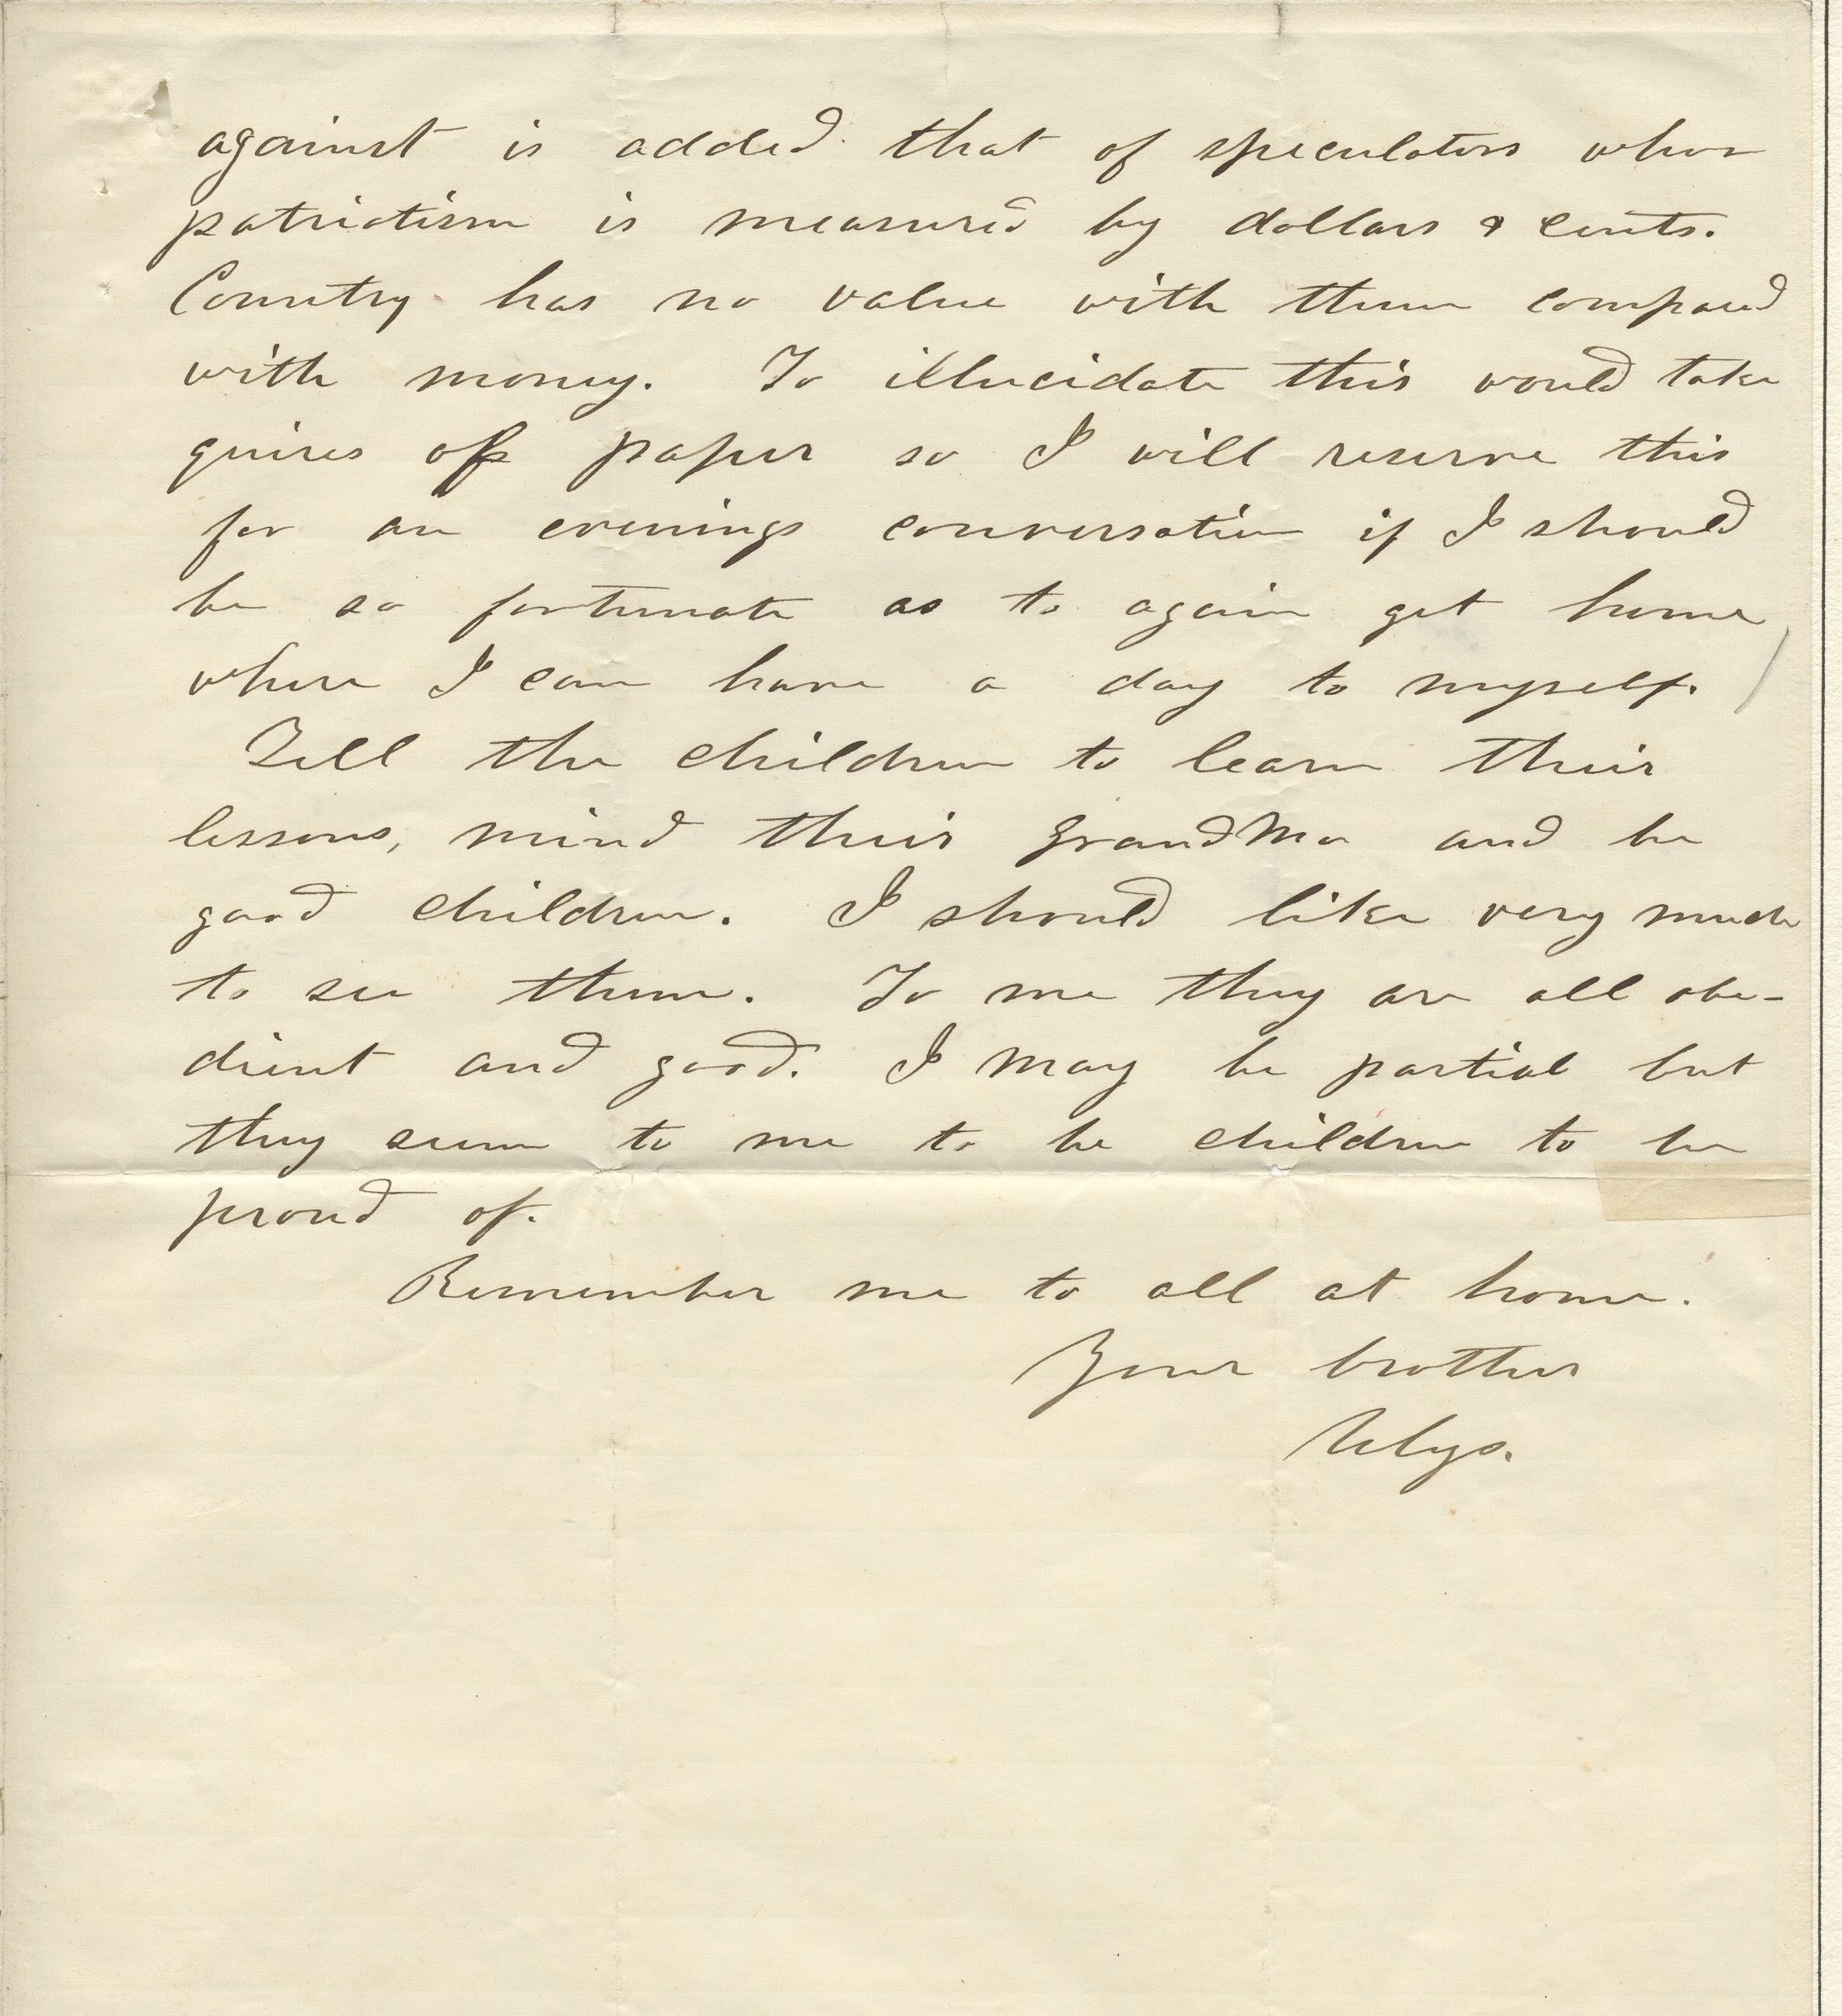 against is added that of speculators whos
patriotism is measured by dollars & cents.
Country has no value with them compared
with money. To illucidate this would take
quires of paper so I will reserve this
for an evenings conversation if I should
be so fortunate as to again get home
where I can have a day to myself.
Tell the children to learn their
lessons, mind their GrandMa and be
good children. I should like very much
to see them. To me they are all obe-
dient and good. I may be partial but
they seem to me to be children to be
proud of.
Remember me to all at home.
Your brother
Ulys.